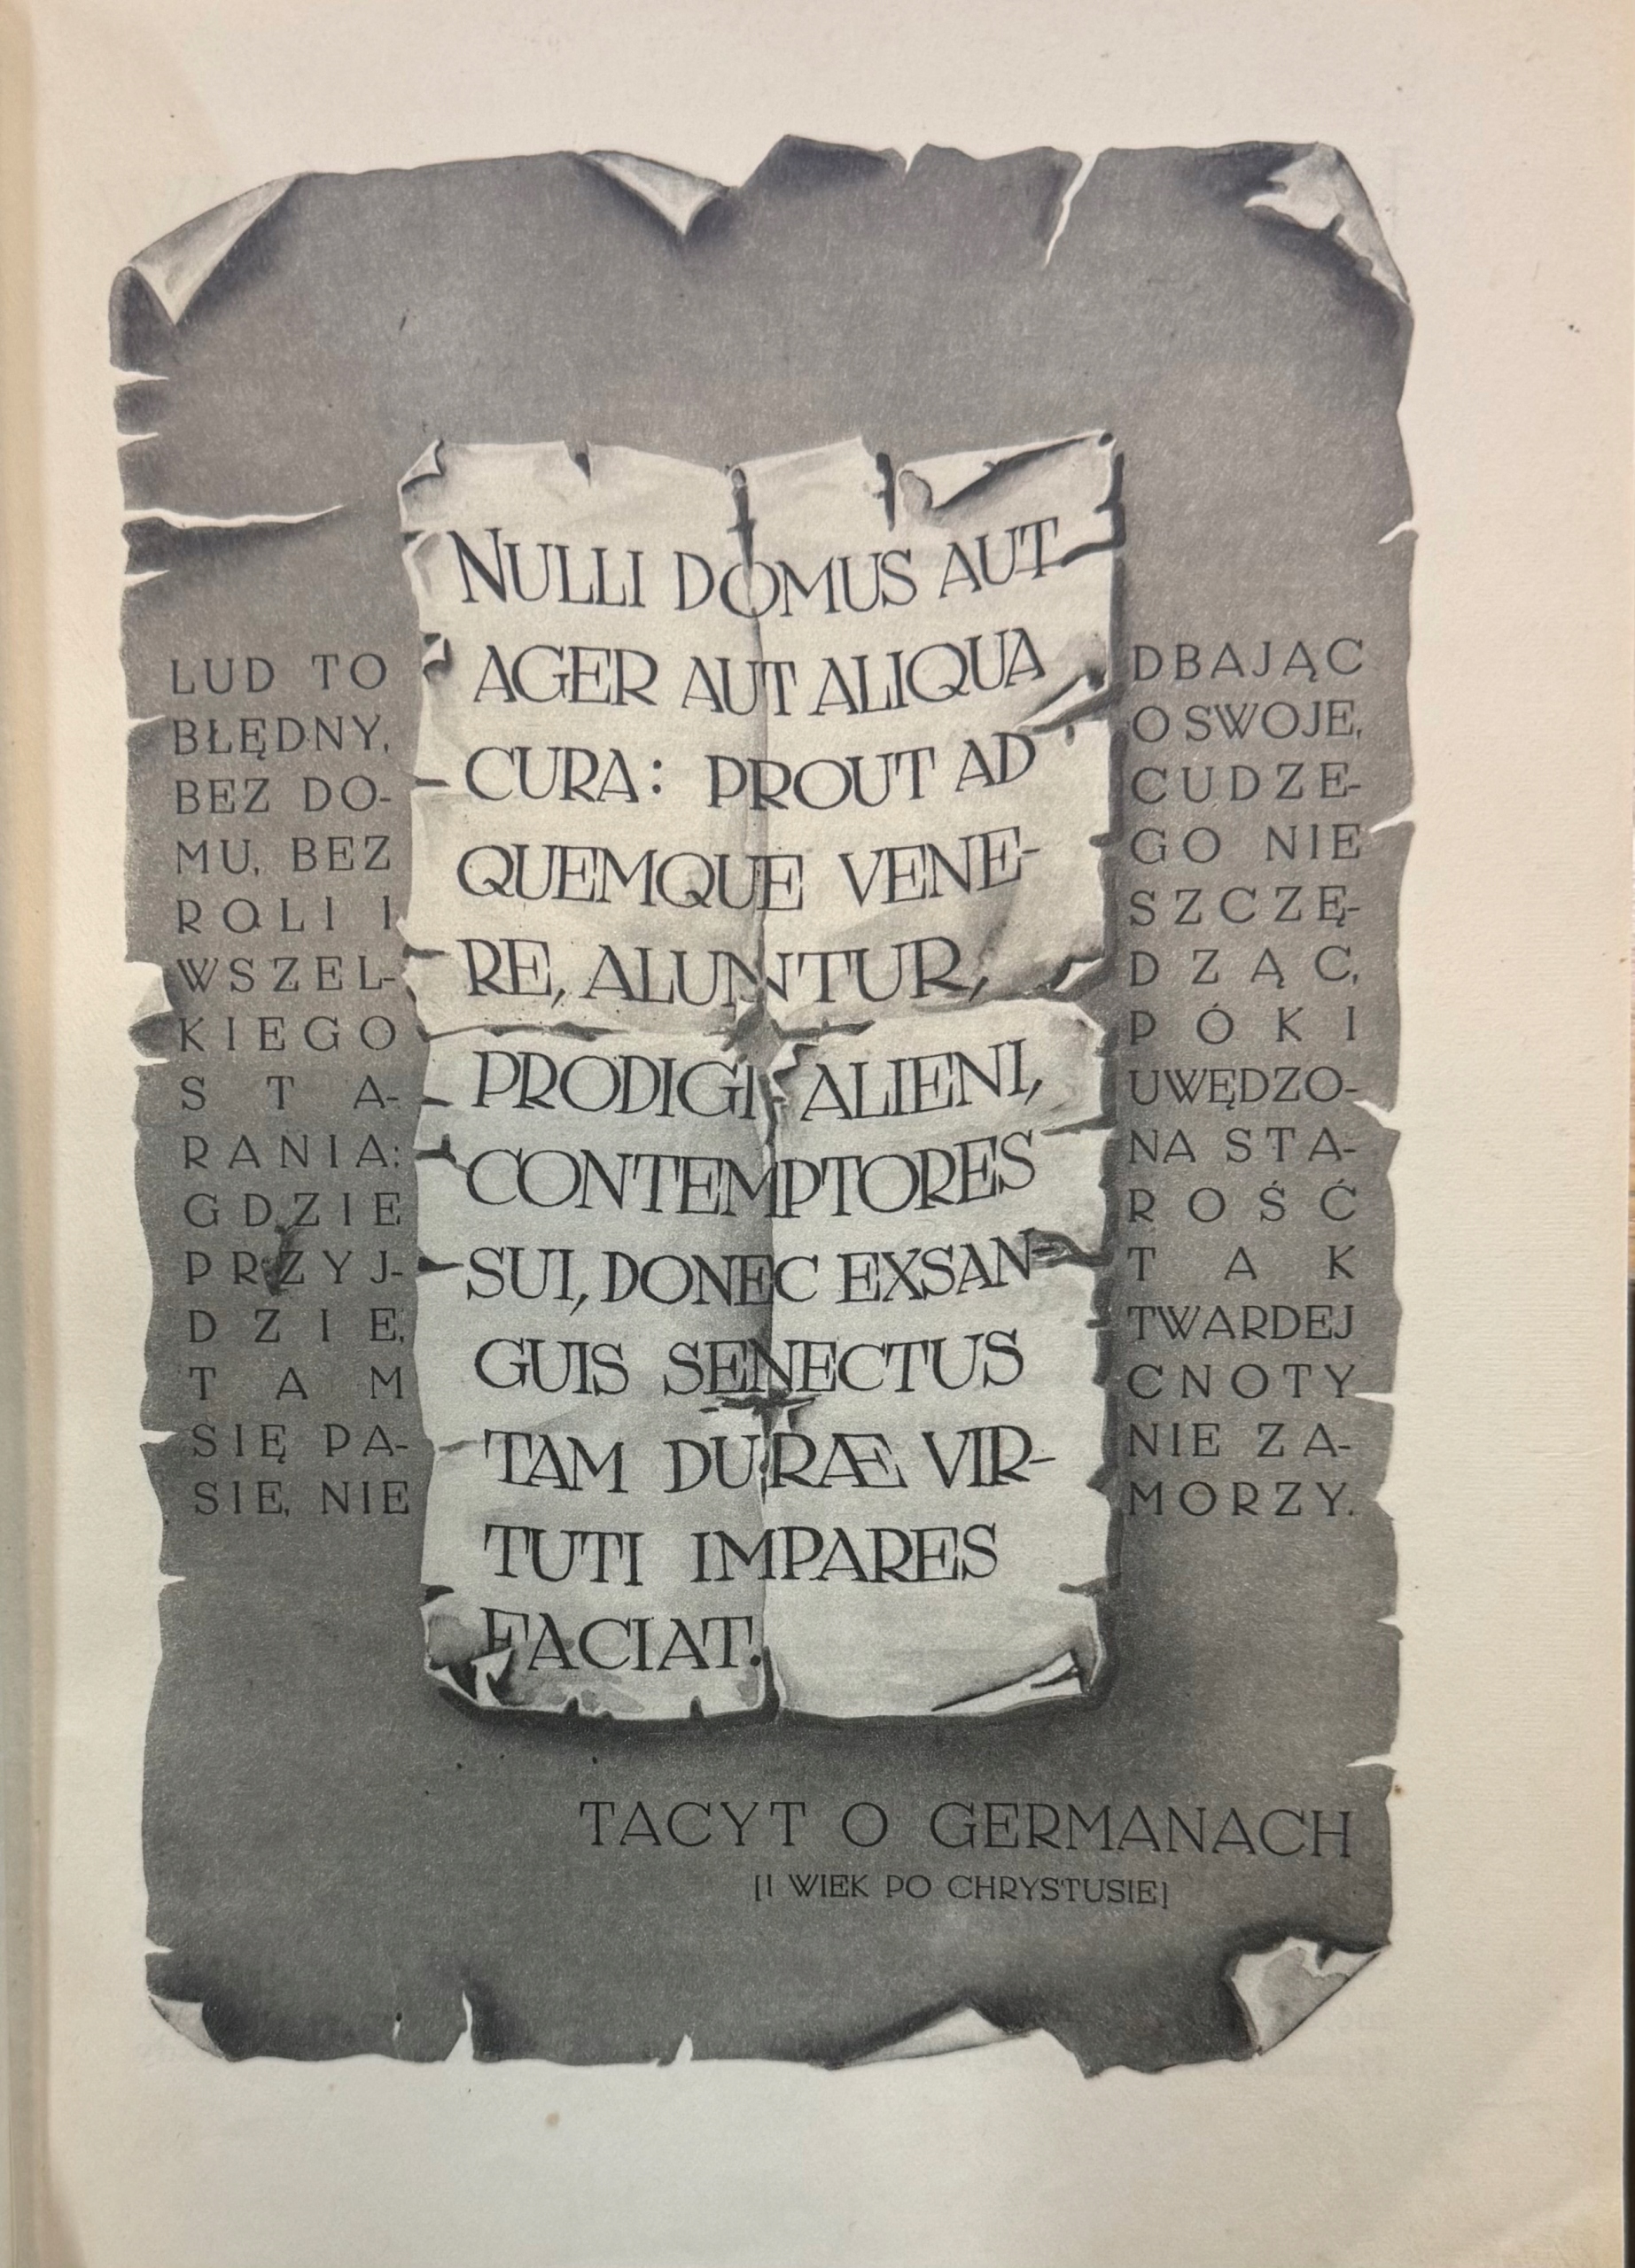 NULLI DOMUS AUT
AGER AUT ALIQUA
CURA: PROUT AD
QUEMQUE VENE-
RE, ALUNTUR,
PRODIGI ALIENI,
CONTEMPTORES
SUI, DONEC EXSAN-
GUIS SENECTUS
TAM DURÆ VIR-
TUTI IMPARES
FACIAT.
LUD TO
BŁĘDNY,
BEZ DO-
MU, BEZ
ROLI I
WSZEL-
KIEGO
STA-
RANIA:
GDZIE
PRZYJ-
DZIE,
TAM
SIĘ PA-
SIE, NIE
DBAJĄC
O SWOJE,
CUDZE-
GO NIE
SZCZĘ-
DZĄC,
PÓKI
UWĘDZO-
NA STA-
ROŚĆ
TAK
TWARDEJ
CNOTY
NIE ZA-
MORZY.
TACYT O GERMANACH
[I WIEK PO CHRYSTUSIE]